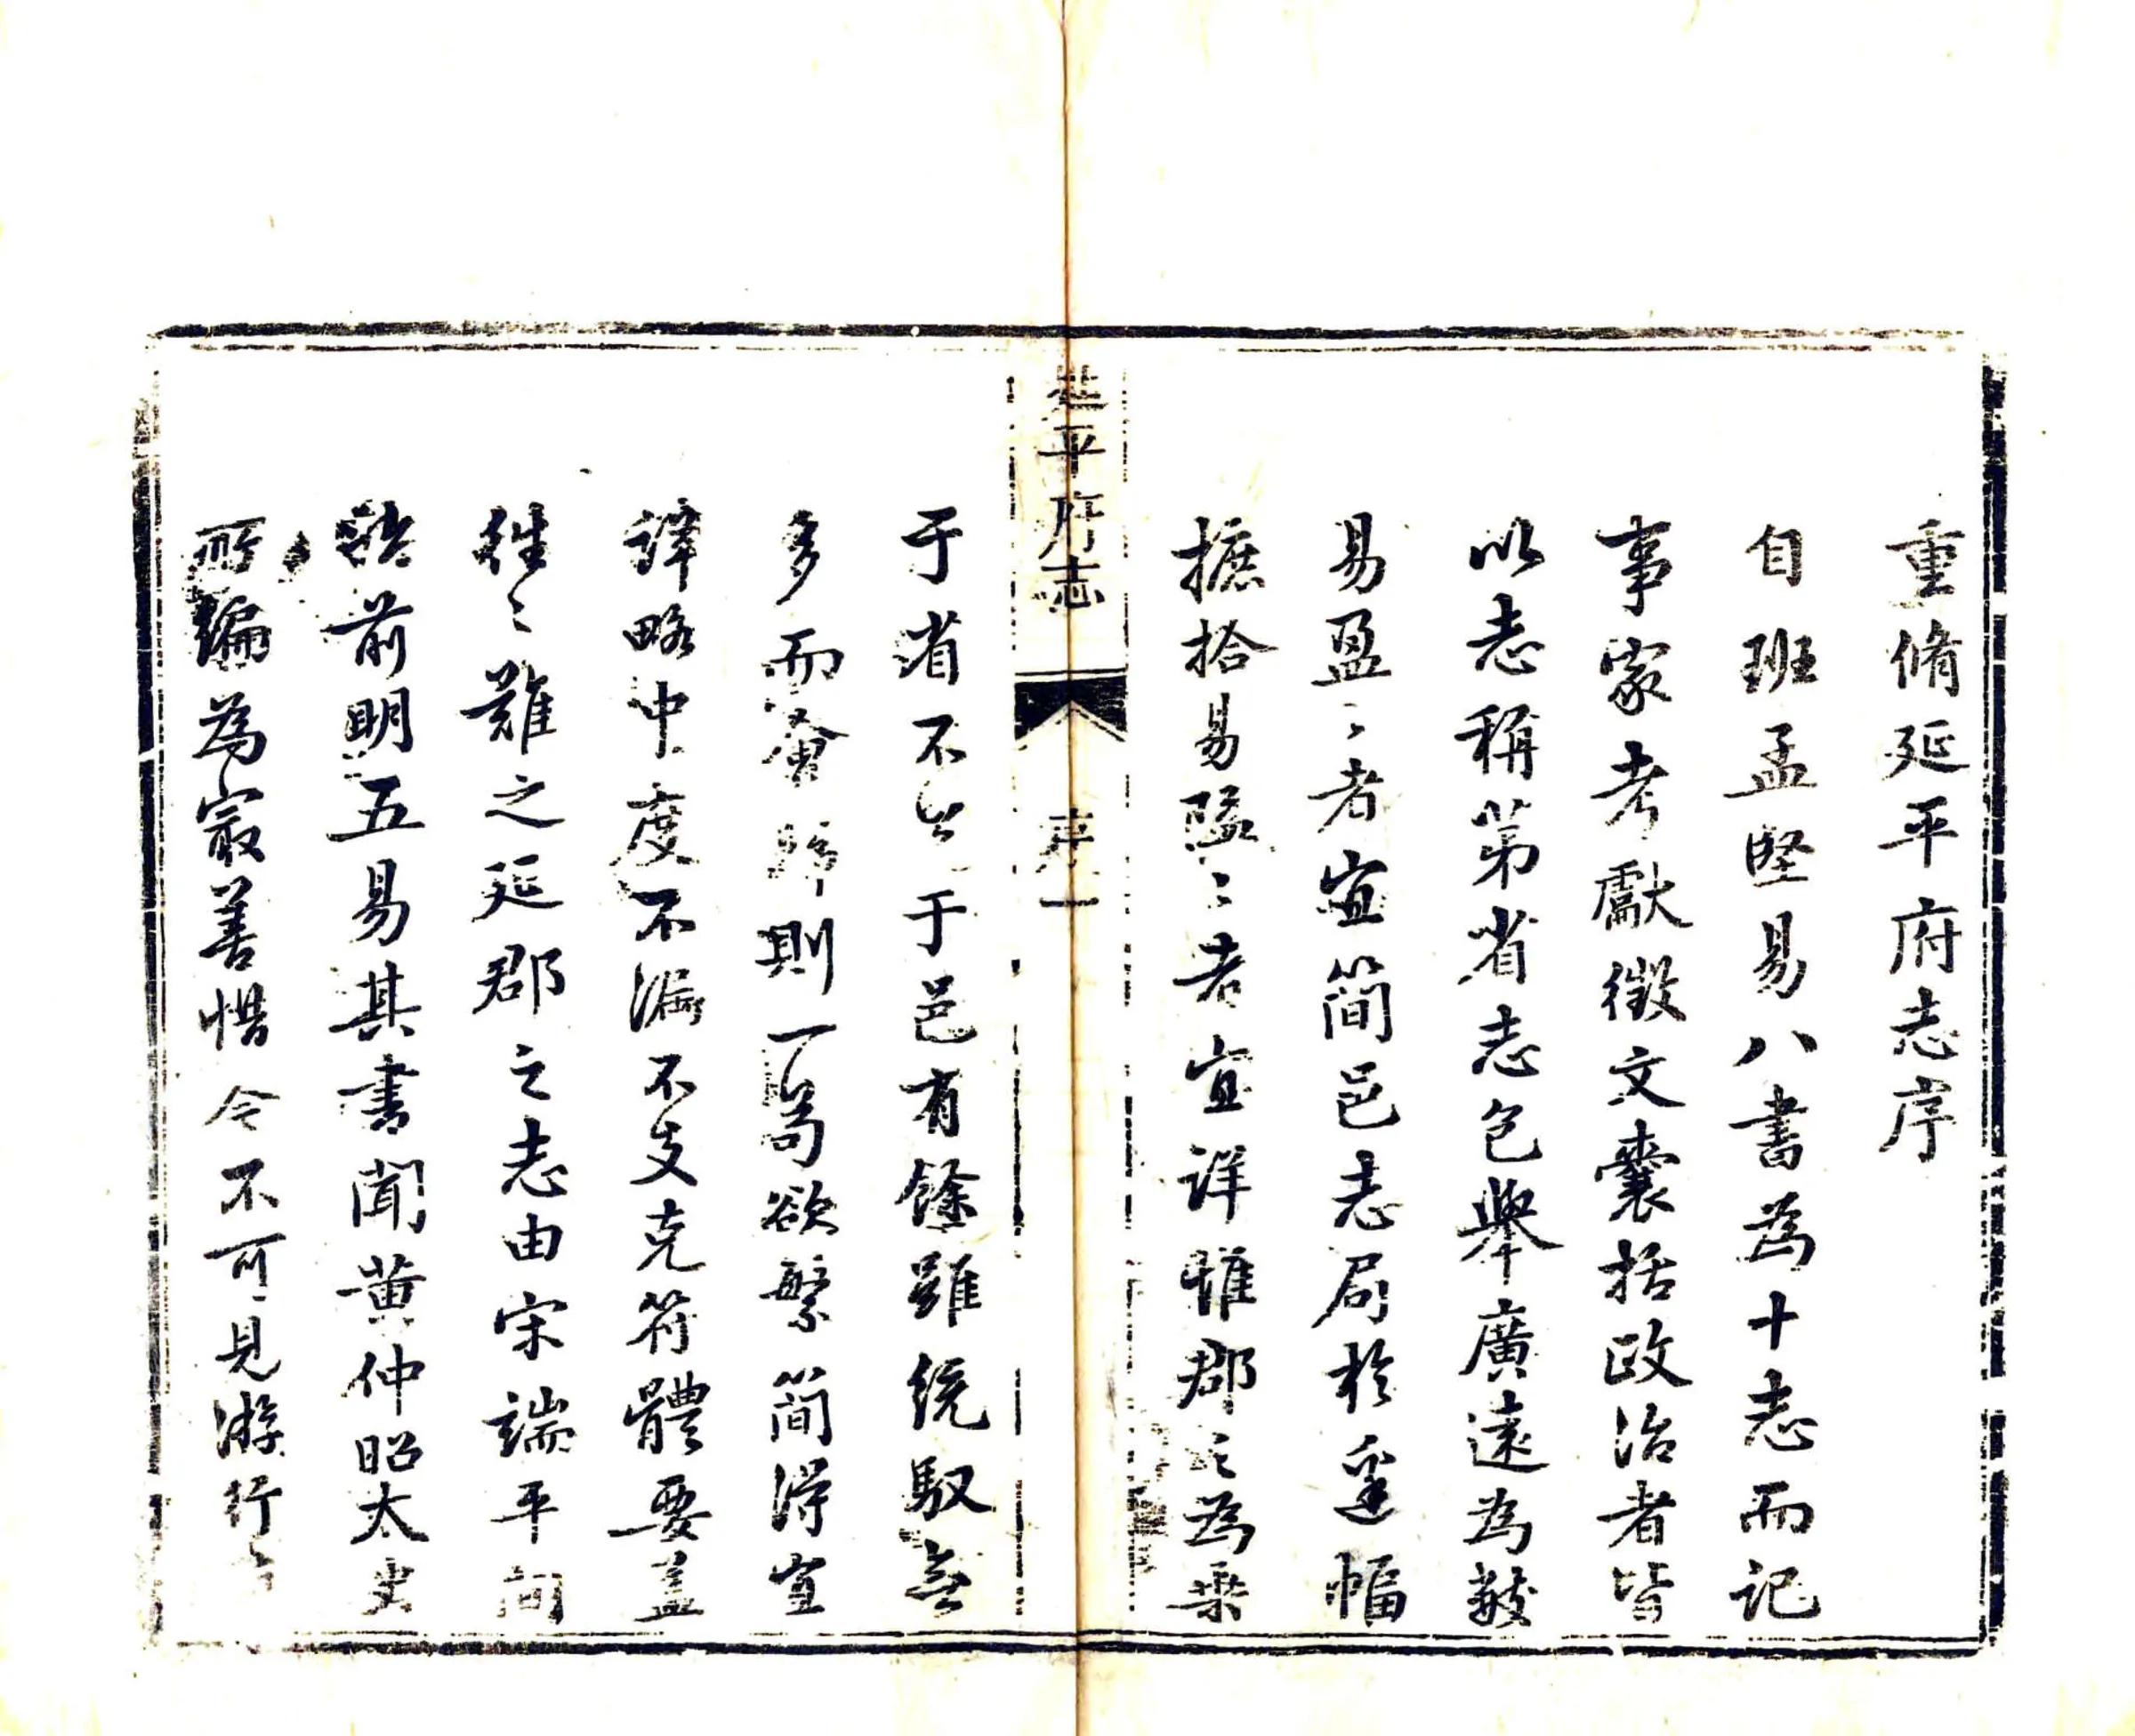 重脩延平府志序
自班孟堅易八書為十志而記
事家考獻徵文囊括政治者皆
以志稱第省志包舉廣遠為類
易盈〻者宜簡邑志局於邊幅
摭拾易隘〻者宜詳惟郡之為乘
延平府志 序 一
于省不足于邑有餘雖統馭無
多而會歸則一苟欲繁簡得宜
詳略中度不漏不支克符體要蓋
往〻難之延郡之志由宋端平間
訖前明五易其書聞黃仲昭太史
所編為最善惜今不可見游行